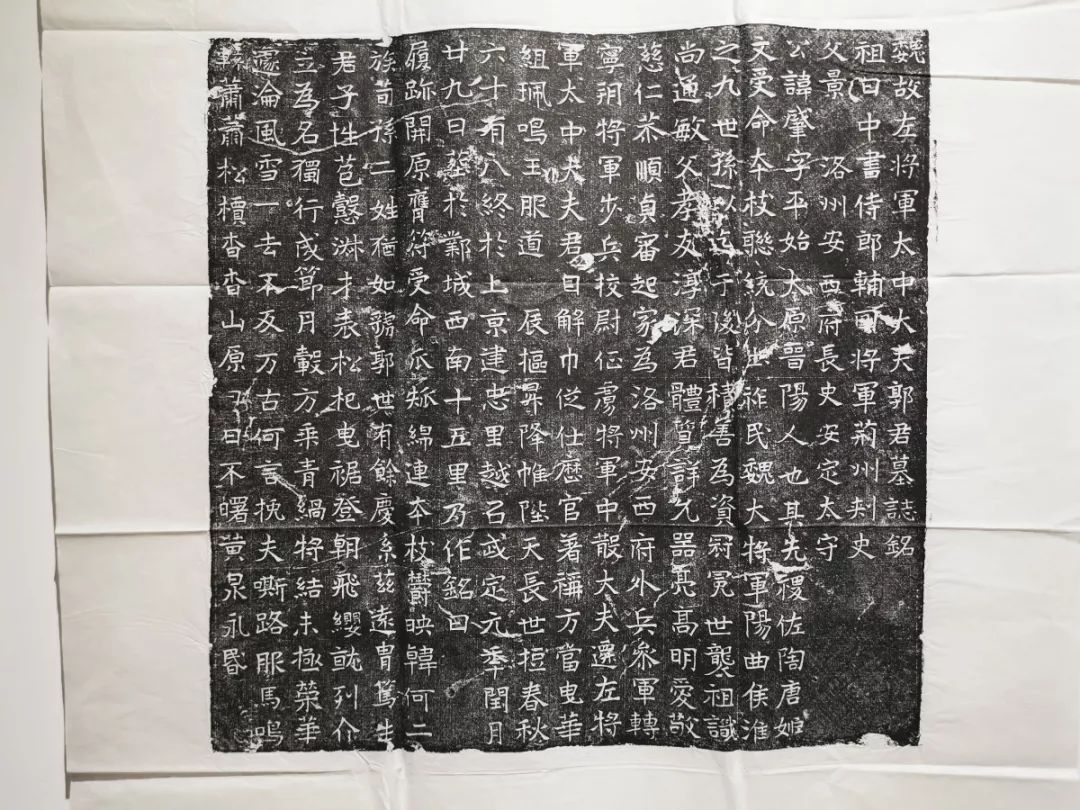 魏故左將軍太中大夫郭君墓誌銘
祖日中書侍郎輔國將軍荊州刾史
父景 洛州安西府長史安定太守
公諱肇字平始太原晉陽人也其先稷佐陶唐姬
文受命夲枝聯統分生於民魏大將軍陽曲侯淮
之九世孫以迄于後皆積善為資冠冕世襲祖識
尚通敏父孝友淳深君體質詳凢器亮高明愛敬
慈仁恭順貞審起家為洛州安西府外兵叅軍轉
寧朔將軍步兵校尉征虜將軍中散大夫遷左將
軍太中大夫君自解巾從仕歷官著稱方當曳華
組珮鳴玉服道 辰樞昇降帷陛天長世短春秋
六十有八終於上京建忠里越召武定元秊閏月
廿九日葬於鄴城西南十五里乃作銘曰
履跡開原膺符受命瓜瓞綿連夲枝欝映韓何二
族荀孫二姓猶如虢郭世有餘慶系茲遠胄篤生
君子性苞懿淋才表松杞曳裾登朝飛纓就列介
立為名獨行成節丹轂方乘青緺將結未極榮華
遽淪風雪一去不反万古何言挽夫嘶路服馬鳴
轅蕭蕭松檟杳杳山原 日不曙黄泉永昏